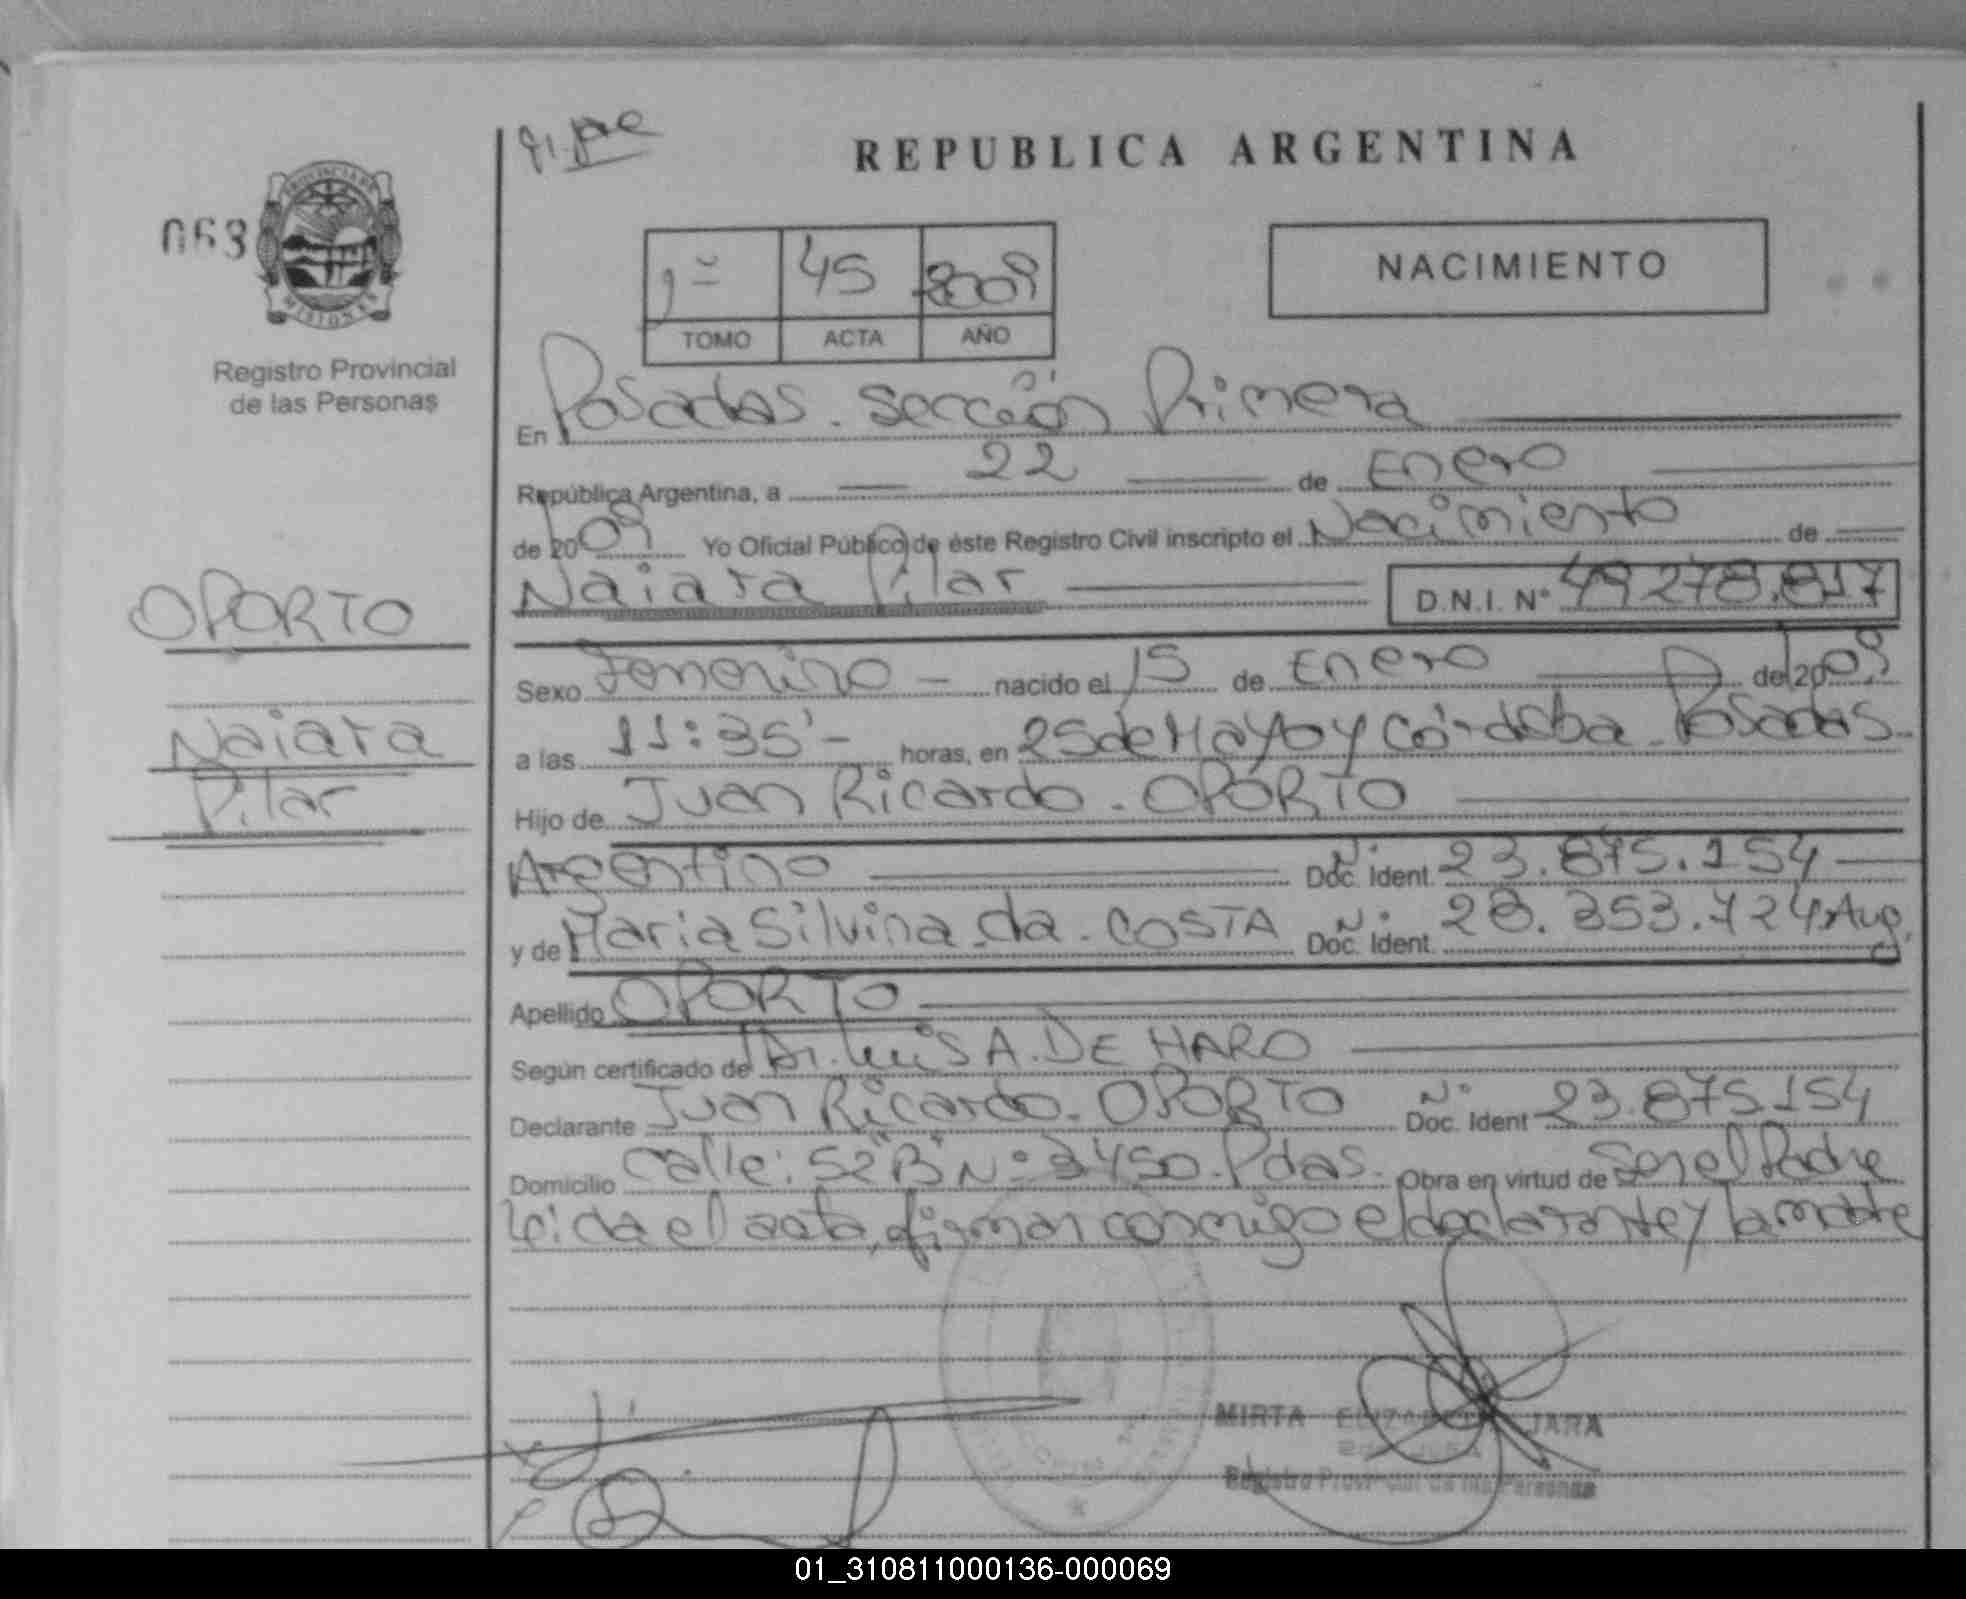 REPUBLICA ARGENTINA
063
PROVINCIA DE
MISIONES
Registro Provincial
de las Personas
1º 45 2009
TOMO ACTA AÑO
NACIMIENTO
En Posadas. Sección Primera
República Argentina, a 22 de Enero
de 2009 Yo Oficial Público de éste Registro Civil inscripto el Nacimiento de
Naiara Pilar D.N.I. Nº 49278.817
OPORTO
Naiara
Pilar
Sexo Femenino - nacido el 15 de Enero de 2009
a las 11:35'- horas, en 25 de Mayo y Córdoba - Posadas.
Hijo de Juan Ricardo. OPORTO
Argentino Doc. Ident. Nº 23.875.154
y de Maria Silvina da. COSTA Doc. Ident. Nº 28.353.724 Arg.
Apellido OPORTO
Según certificado de Dr. Luis A. DE HARO
Declarante Juan Ricardo. OPORTO Doc. Ident Nº 23.875.154
Domicilio Calle: 52"B" Nº 3450. Pdas. Obra en virtud de Ser el Padre
leida el acta, firman conmigo el declarante y la madre
MIRTA ELIZABETH JARA
Registro Provincial de las Personas
01_310811000136-000069